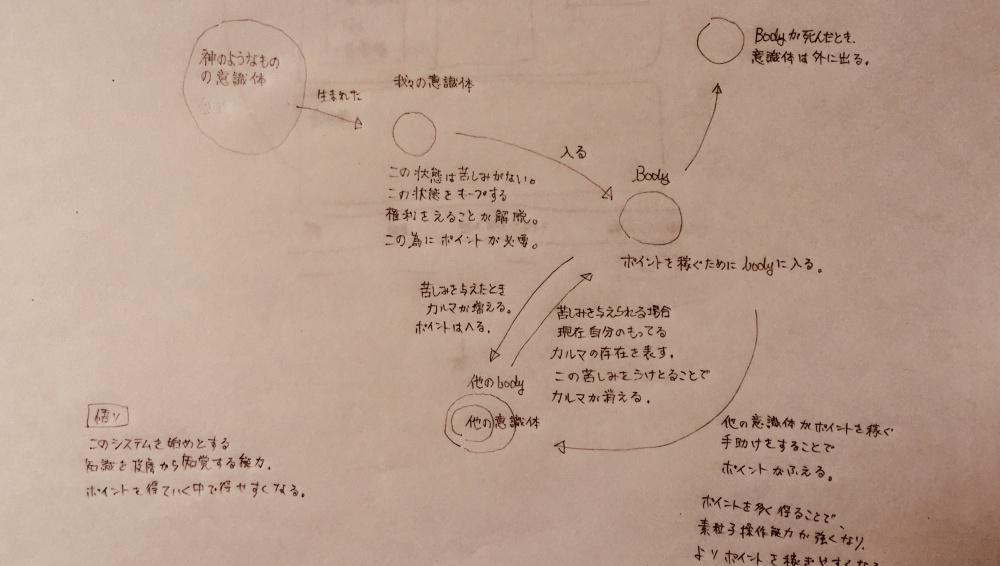 神のようなもの
の意識体
生まれた
我々の意識体
この状態は苦しみがない。
この状態をキープする
権利をえることが解脱。
この為にポイントが必要。
入る
Body
ポイントを稼ぐためにbodyに入る。
Bodyが死んだとき、
意識体は外に出る。
苦しみを与えたとき
カルマが増える。
ポイントは入る。
苦しみを与えられる場合
現在自分のもってる
カルマの存在を表す。
この苦しみをうけとることで
カルマが消える。
他のbody
他の意識体
他の意識体がポイントを稼ぐ
手助けをすることで
ポイントがふえる。
ポイントを多く得ることで、
素粒子操作能力が強くなり、
よりポイントを稼ぎやすくなる
悟り
このシステムを始めとする
知識を皮膚から知覚する能力。
ポイントを得ていく中で得やすくなる。